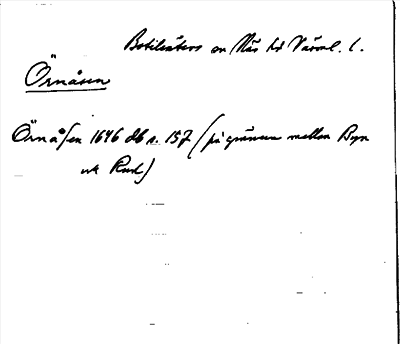 Botilsäters sn Näs hd Värml. l.
Örnåsen
Örnåsen 1646 db s. 157 (på gränsen mellan Byn
och Rud)